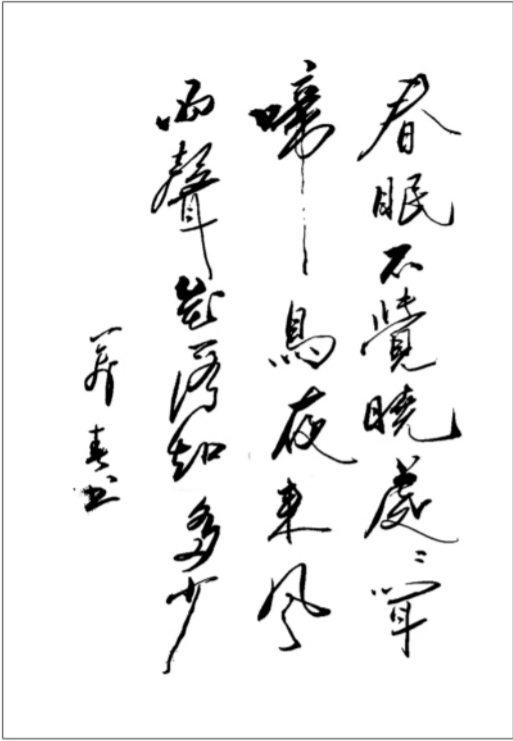 春眠不覺曉處〻聞
啼鳥夜來風
雨聲花落知多少
春书